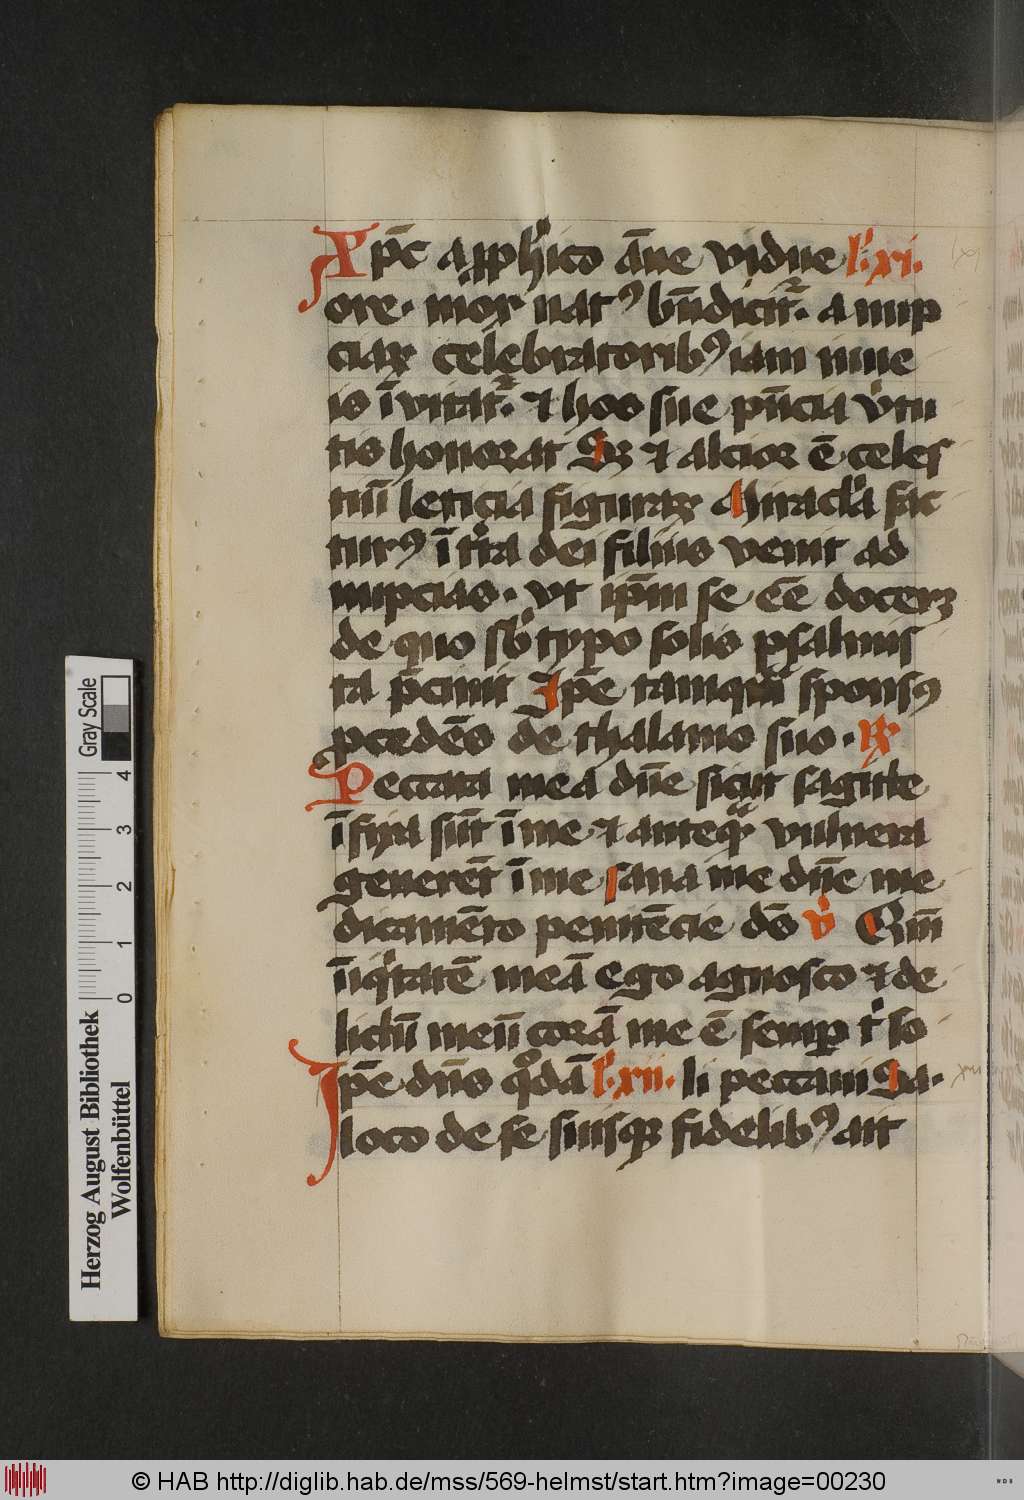 Xpc̄ a ꝓph̓ico āne vidue l̓·xi·
ore· mox natꝰ bn̄dicit᷑· a nup
ciaꝝ celebratoribꝰ iam iuue
is īvitat᷑· ⁊ hos sue pn̄cia v̓tu
tis honorat Sꝫ ⁊ alcior ē celes
tiū leticia figuraꝝ Miracl̓a fac
turꝰ ī tr̓ra dei filius venit ad
nupcias· vt ip̄m se eē̄ docerꝫ
de quo sb̓ typo solis psalmis
ta p̄cinit Ip̄e tamquā sponsꝰ
ꝓcedēs de thalamo suo· ꝶ
Peccata mea dn̄e sicut sagitte
īfixa sūt ī me ⁊ anteqᷓ vulnera
generēt ī me sana me dn̄e me
dicamēto penitēcie ds̄ v̓ Qm̄
īiq̓tatē meā ego agnosco ⁊ de
lictū meū corā me ē semꝑ t̓ so
Ip̄e dn̄s qͦdā l̓·xii· li peccaui Sa·
loco de se suisqꝫ fidelibꝰ ait
Gray Scale
4
3
2
1
0
Herzog August Bibliothek
Wolfenbüttel
© HAB http://diglib.hab.de/mss/569-helmst/start.htm?image=00230